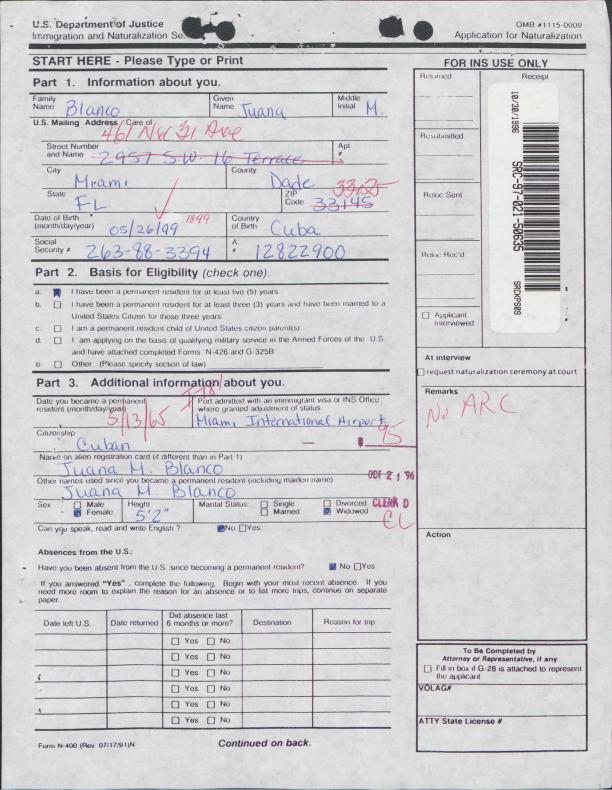 U.S. Department of Justice
Immigration and Naturalization Se
OMB #1115-0009
Application for Naturalization
START HERE - Please Type or Print
FOR INS USE ONLY
Part 1. Information about you.
Family Name Blanco Given Name Juana Middle Initial M.
U.S. Mailing Address / Care of
461 NW 31 Ave
Street Number and Name 2957 S.W. 16 Terrace Apt. #
City Miami County Dade
State FL ZIP Code 33145
33125
Date of Birth (month/day/year) 05/26/99 1899 Country of Birth Cuba
Social Security # 263-88-3394 A # 12822900
Part 2. Basis for Eligibility (check one).
a. I have been a permanent resident for at least five (5) years
b. I have been a permanent resident for at least three (3) years and have been married to a
United States Citizen for those three years
c. I am a permanent resident child of United States citizen parent(s)
d. I am applying on the basis of qualifying military service in the Armed Forces of the U.S
and have attached completed Forms N-426 and G-325B
e. Other. (Please specify section of law)
Part 3. Additional information about you.
Date you became a permanent resident (month/day/year) 5/13/65
Port admitted with an immigrant visa or INS Office where granted adjustment of status.
Miami International Airport
Citizenship
Cuban
$ 95
Name on alien registration card (if different than in Part 1)
Juana M. Blanco
OCT 21 '96
Other names used since you became a permanent resident (including maiden name)
Juana M. Blanco
CLERK D
CL
Sex Male Female Height 5'2" Marital Status: Single Married Divorced Widowed
Can you speak, read and write English ? No Yes.
Absences from the U.S.:
Have you been absent from the U.S. since becoming a permanent resident? No Yes.
If you answered "Yes" , complete the following. Begin with your most recent absence. If you
need more room to explain the reason for an absence or to list more trips, continue on separate
paper.
Date left U.S. Date returned Did absence last 6 months or more? Destination Reason for trip
Yes No
Yes No
Yes No
Yes No
Yes No
Yes No
Form N-400 (Rev 07/17/91)N
Continued on back.
Returned
Receipt
10/30/1996
SRC-97-021-50635
SRCKPS09
Resubmitted
Reloc Sent
Reloc Rec'd
Applicant Interviewed
At interview
request naturalization ceremony at court
Remarks
No ARC
Action
To Be Completed by
Attorney or Representative, if any
Fill in box if G-28 is attached to represent
the applicant
VOLAG#
ATTY State License #